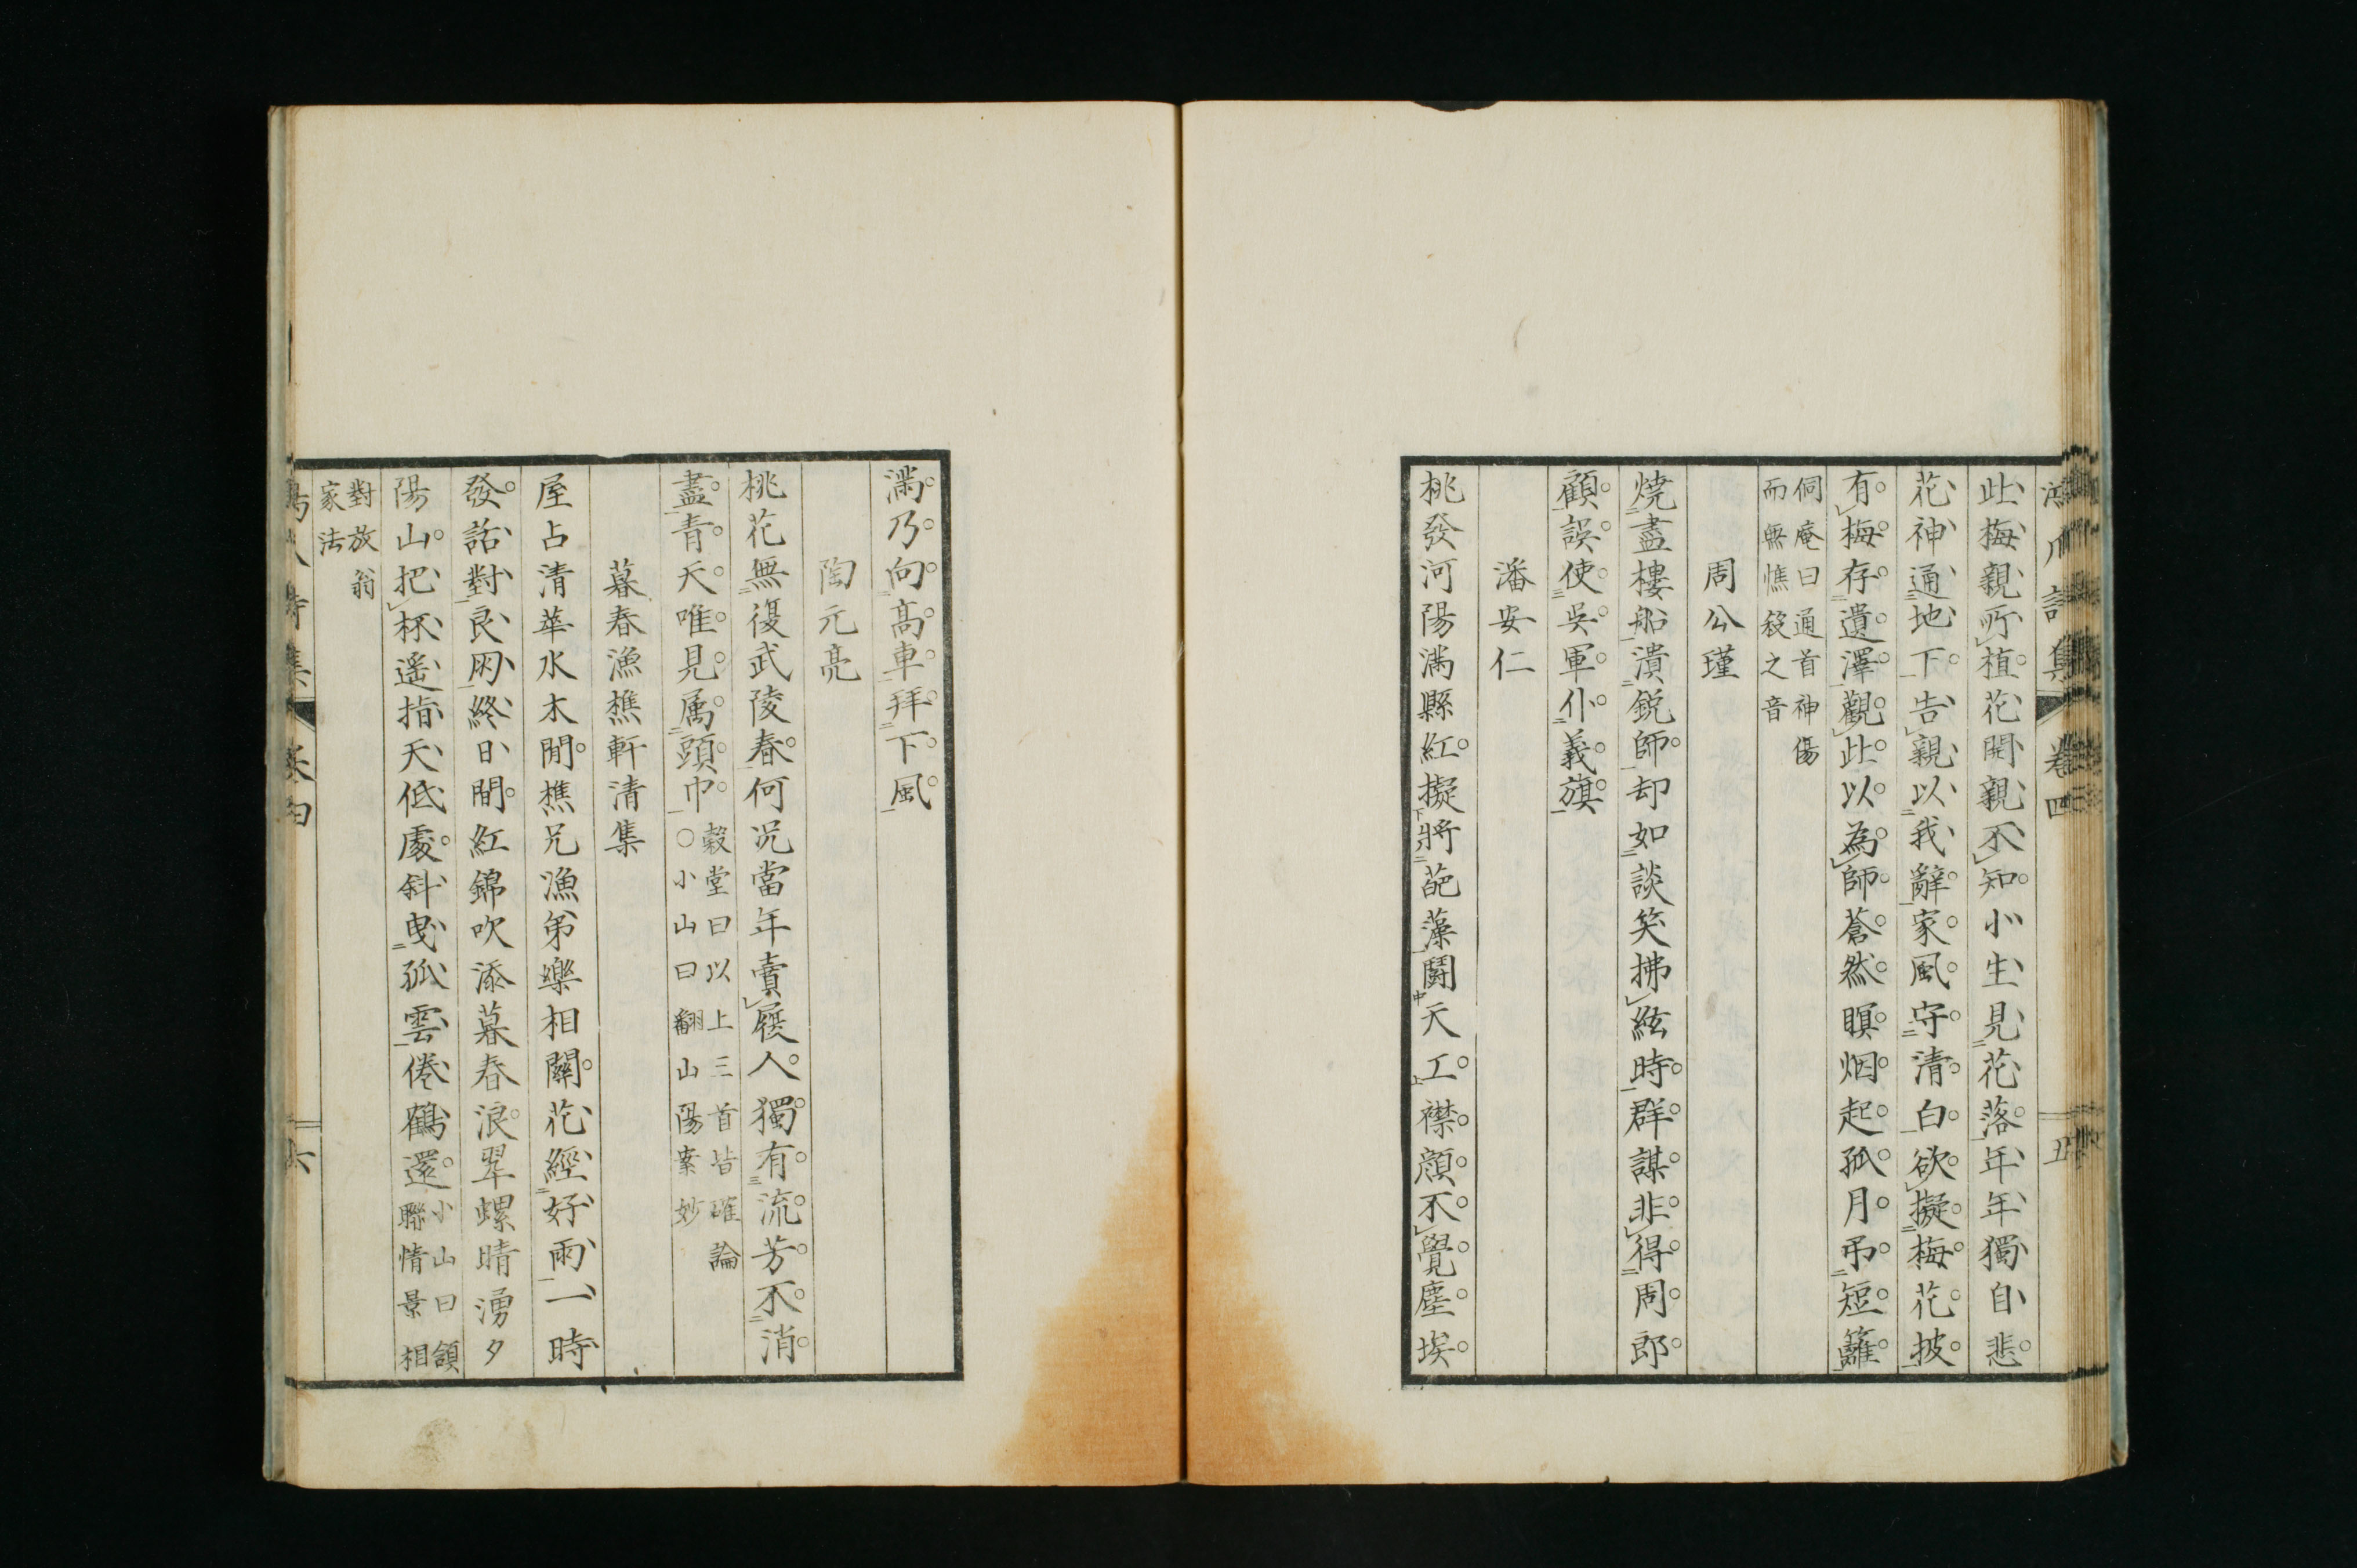 此梅親所植花開親不知小生見花落年年獨自悲
花神通地下告親以我辭家風守清白欲擬梅花披
有梅存遺澤觀此以為師蒼然暝烟起孤月吊短籬
侗庵曰通首神傷
而無憔殺之音
周公瑾
燒盡樓船潰銳師却如談笑拂絃時群謀非得周郎
顧誤使吳軍仆義旗
潘安仁
桃發河陽滿縣紅擬將葩藻鬪天工襟顏不覺塵埃
滿乃向高車拜下風
陶元亮
桃花無復武陵春何況當年賣屐人獨有流芳不消
盡青天唯見属頭巾
穀堂曰以上三首皆確論
○小山曰翻山陽案妙
暮春漁樵軒清集
屋占清華水木閒樵兄漁弟樂相關花經好雨一時
發話對良朋終日間紅錦吹添暮春浪翠螺晴湧夕
陽山把杯遥指天低處斜曳孤雲倦鶴還
小山曰頷
聯情景相
對放翁
家法
卷四
五
六